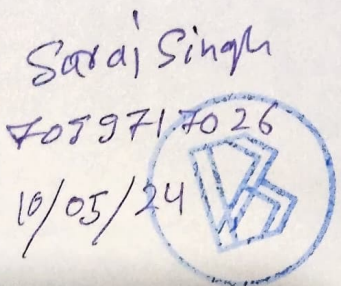 Saraj Singh
7059717026
10/05/24